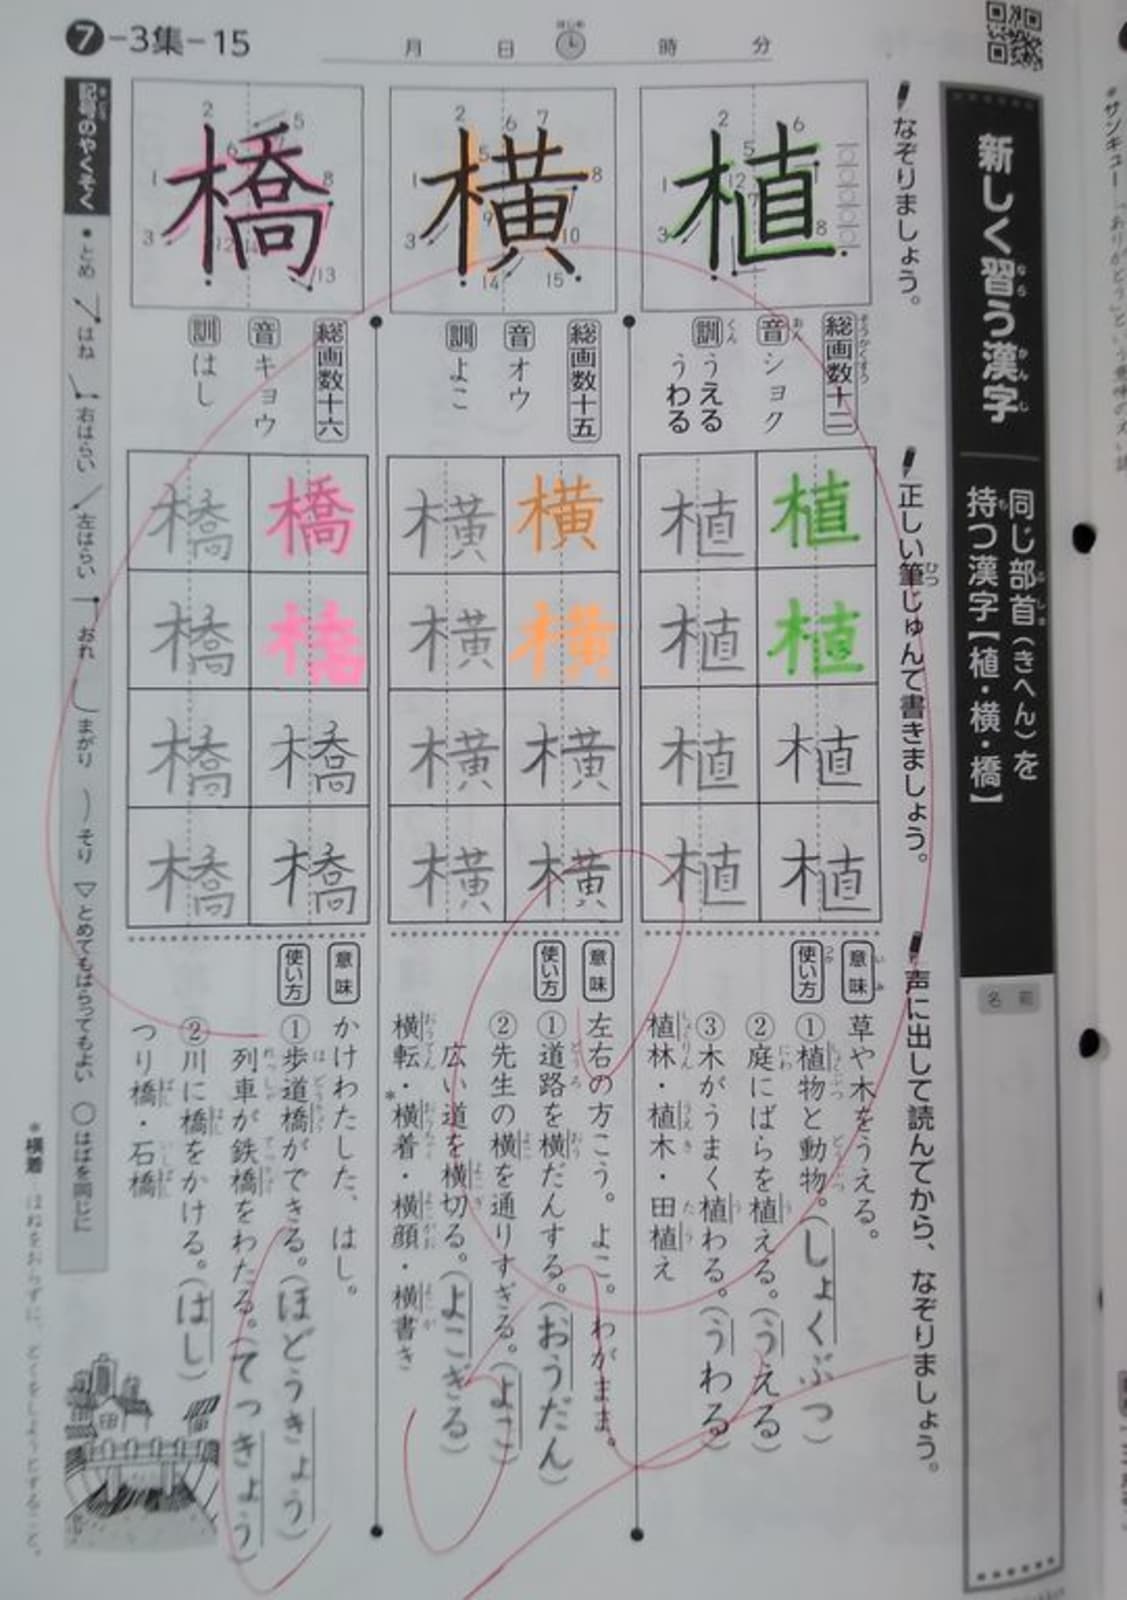 ❼-3集-15
月 日 はじめ 時 分
新しく習う漢字
同じ部首(きへん)を
持つ漢字【植・横・橋】
名前
なぞりましょう。
正しい筆じゅんで書きましょう。
声に出して読んでから、なぞりましょう。
植
総画数十二
音 ショク
訓 うえる
うわる
植 植
植 植
植 植
植 植
意味 草や木をうえる。
使い方 ①植物と動物。(しょくぶつ)
②庭にばらを植える。(うえる)
③木がうまく植わる。(うわる)
植林・植木・田植え
横
総画数十五
音 オウ
訓 よこ
横 横
横 横
横 横
横 横
意味 左右の方こう。よこ。わがまま。
使い方 ①道路を横だんする。(おうだん)
②先生の横を通りすぎる。(よこ)
広い道を横切る。(よこぎる)
横転・*横着・横顔・横書き
橋
総画数十六
音 キョウ
訓 はし
橋 橋
橋 橋
橋 橋
橋 橋
意味 かけわたした、はし。
使い方 ①歩道橋ができる。(ほどうきょう)
列車が鉄橋をわたる。(てっきょう)
②川に橋をかける。(はし)
つり橋・石橋
記号のやくそく
•とめ はね 右はらい 左はらい おれ まがり そり ▽とめてもはらってもよい ○はばを同じに
*横着…はねをおらずに、どくをしようとすること。